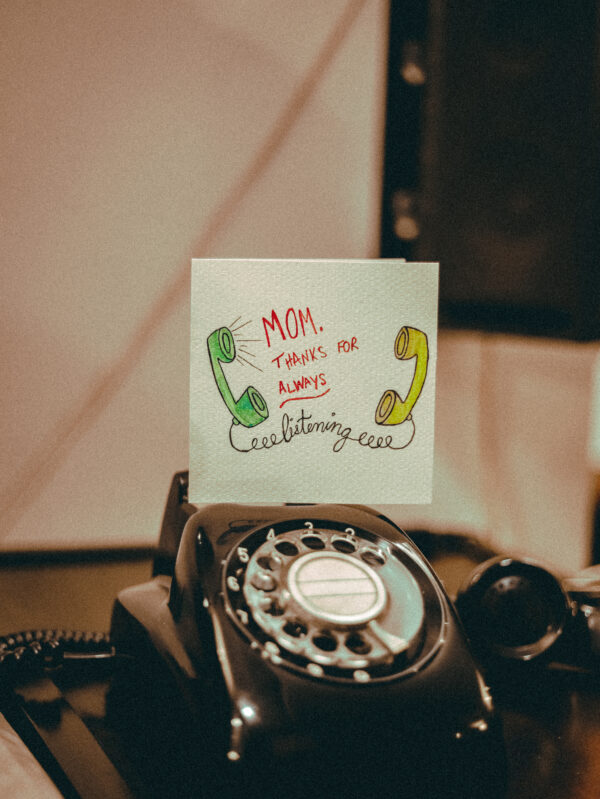 MOM.
THANKS FOR
ALWAYS
listening
2
3
4
5
6